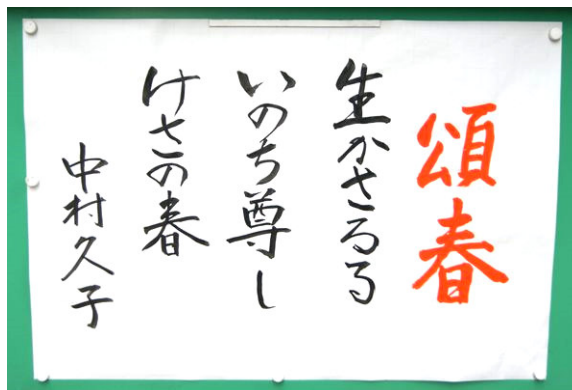 頌春
生かさるる
いのち尊し
けさの春
中村久子